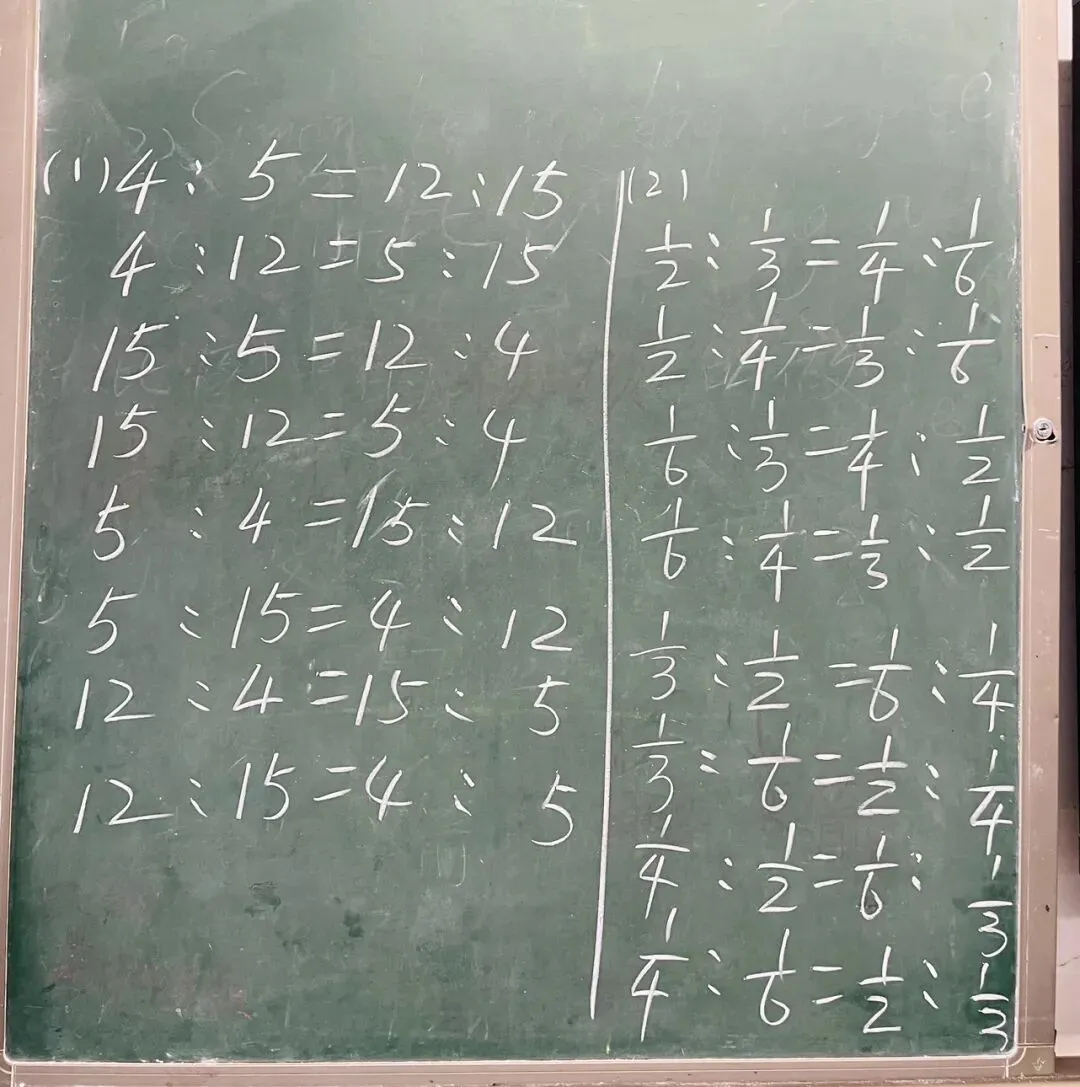 (1) 4 : 5 = 12 : 15
4 : 12 = 5 : 15
15 : 5 = 12 : 4
15 : 12 = 5 : 4
5 : 4 = 15 : 12
5 : 15 = 4 : 12
12 : 4 = 15 : 5
12 : 15 = 4 : 5
(2)
1/2 : 1/3 = 1/4 : 1/6
1/2 : 1/4 = 1/3 : 1/6
1/6 : 1/3 = 1/4 : 1/2
1/6 : 1/4 = 1/3 : 1/2
1/3 : 1/2 = 1/6 : 1/4
1/3 : 1/6 = 1/2 : 1/4
1/4 : 1/2 = 1/6 : 1/3
1/4 : 1/6 = 1/2 : 1/3